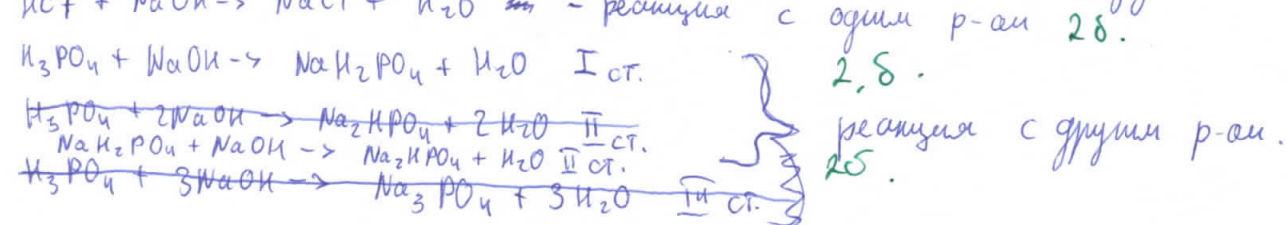 HCl + NaOH -> NaCl + H₂O - реакция с одним р-ом 2б.
H₃PO₄ + NaOH -> NaH₂PO₄ + H₂O I ст. 2,б.
H₃PO₄ + 2NaOH -> Na₂HPO₄ + 2H₂O II ст.
NaH₂PO₄ + NaOH -> Na₂HPO₄ + H₂O II ст. реакция с другим р-ом.
2б.
H₃PO₄ + 3NaOH -> Na₃PO₄ + 3H₂O III ст.